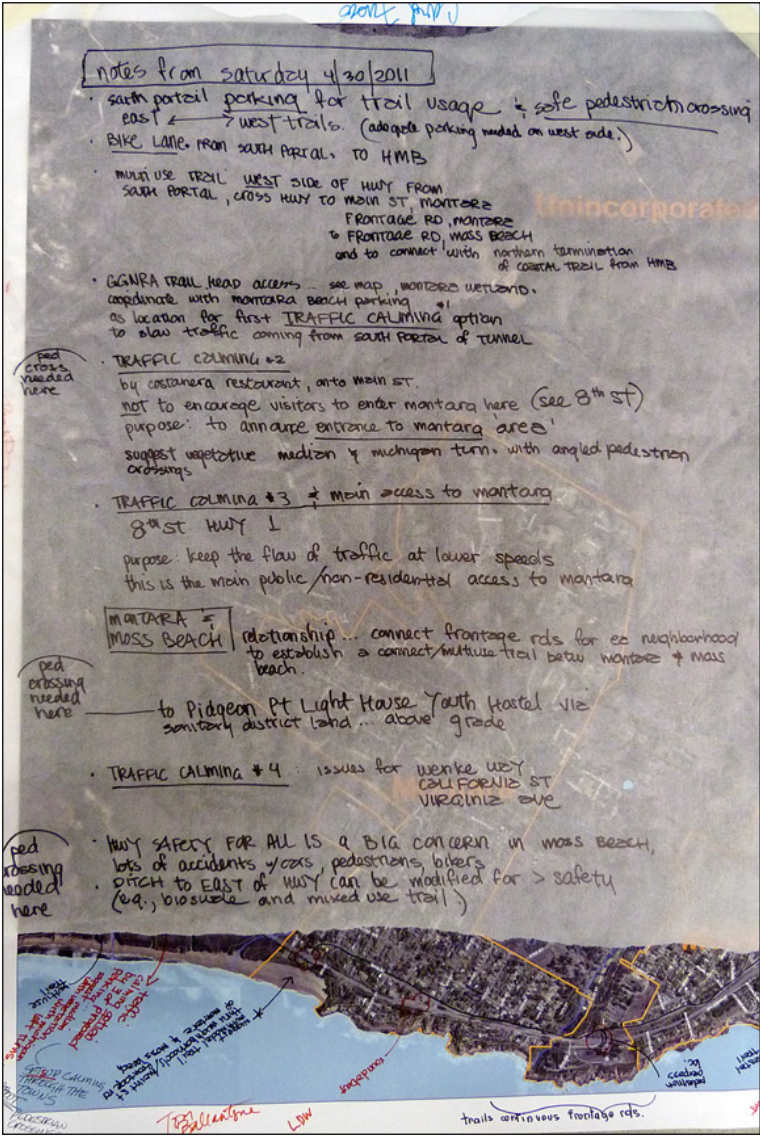 notes from saturday 4/30/2011
• south portail parking for trail usage & safe pedestrich crossing
east ⟷ west trails. (adequate parking needed on west side.)
• BIKE LANE. FROM SOUTH PORTAL. TO HMB
• MULTI USE TRAIL WEST SIDE OF HWY FROM
SOUTH PORTAL, CROSS HWY TO MAIN ST, MONTARA
FRONTAGE RD, MONTARA
to FRONTAGE RD, MOSS BEACH
and to connect with northern termination
of COASTAL TRAIL from HMB
Unincorporated
• GGNRA TRAIL HEAD access... see map, MONTARA WETLAND.
coordinate with MONTARA BEACH parking
as location for first TRAFFIC CALMING #1 option
to slow traffic coming from SOUTH PORTAL of TUNNEL
ped
cross
needed
here
• TRAFFIC CALMING #2
by costanera restaurant, onto main ST.
not to encourage visitors to enter montara here (see 8th ST)
purpose: to announce entrance to montara 'area'
suggest vegetative median & michigan turn. with angled pedestrian
crossings
• TRAFFIC CALMING #3 & main access to montara
8th ST HWY 1
purpose: keep the flow of traffic at lower speeds
this is the main public/non-residential access to montara
MONTARA &
MOSS BEACH
relationship... connect frontage rds for ea neighborhood
to establish a connect/multiuse trail betw montara & moss
beach.
ped
crossing
needed
here
to Pidgeon Pt Light House Youth Hostel via
sanitary district land... above grade
• TRAFFIC CALMING #4: issues for WENKE WAY
CALIFORNIA ST
VIRGINIA AVE
ped
crossing
needed
here
• HWY SAFETY FOR ALL IS A BIG CONCERN in MOSS BEACH,
lots of accidents w/cars, pedestrians, bikers
• DITCH to EAST of HWY can be modified for > safety
(e.g., bioswale and mixed use trail)
traffic
calming option
roundabout
TOWNS
THROUGH THE
PEDESTRIAN
CROSSING
Ballantyne
LDW
trails continuous frontage rds.